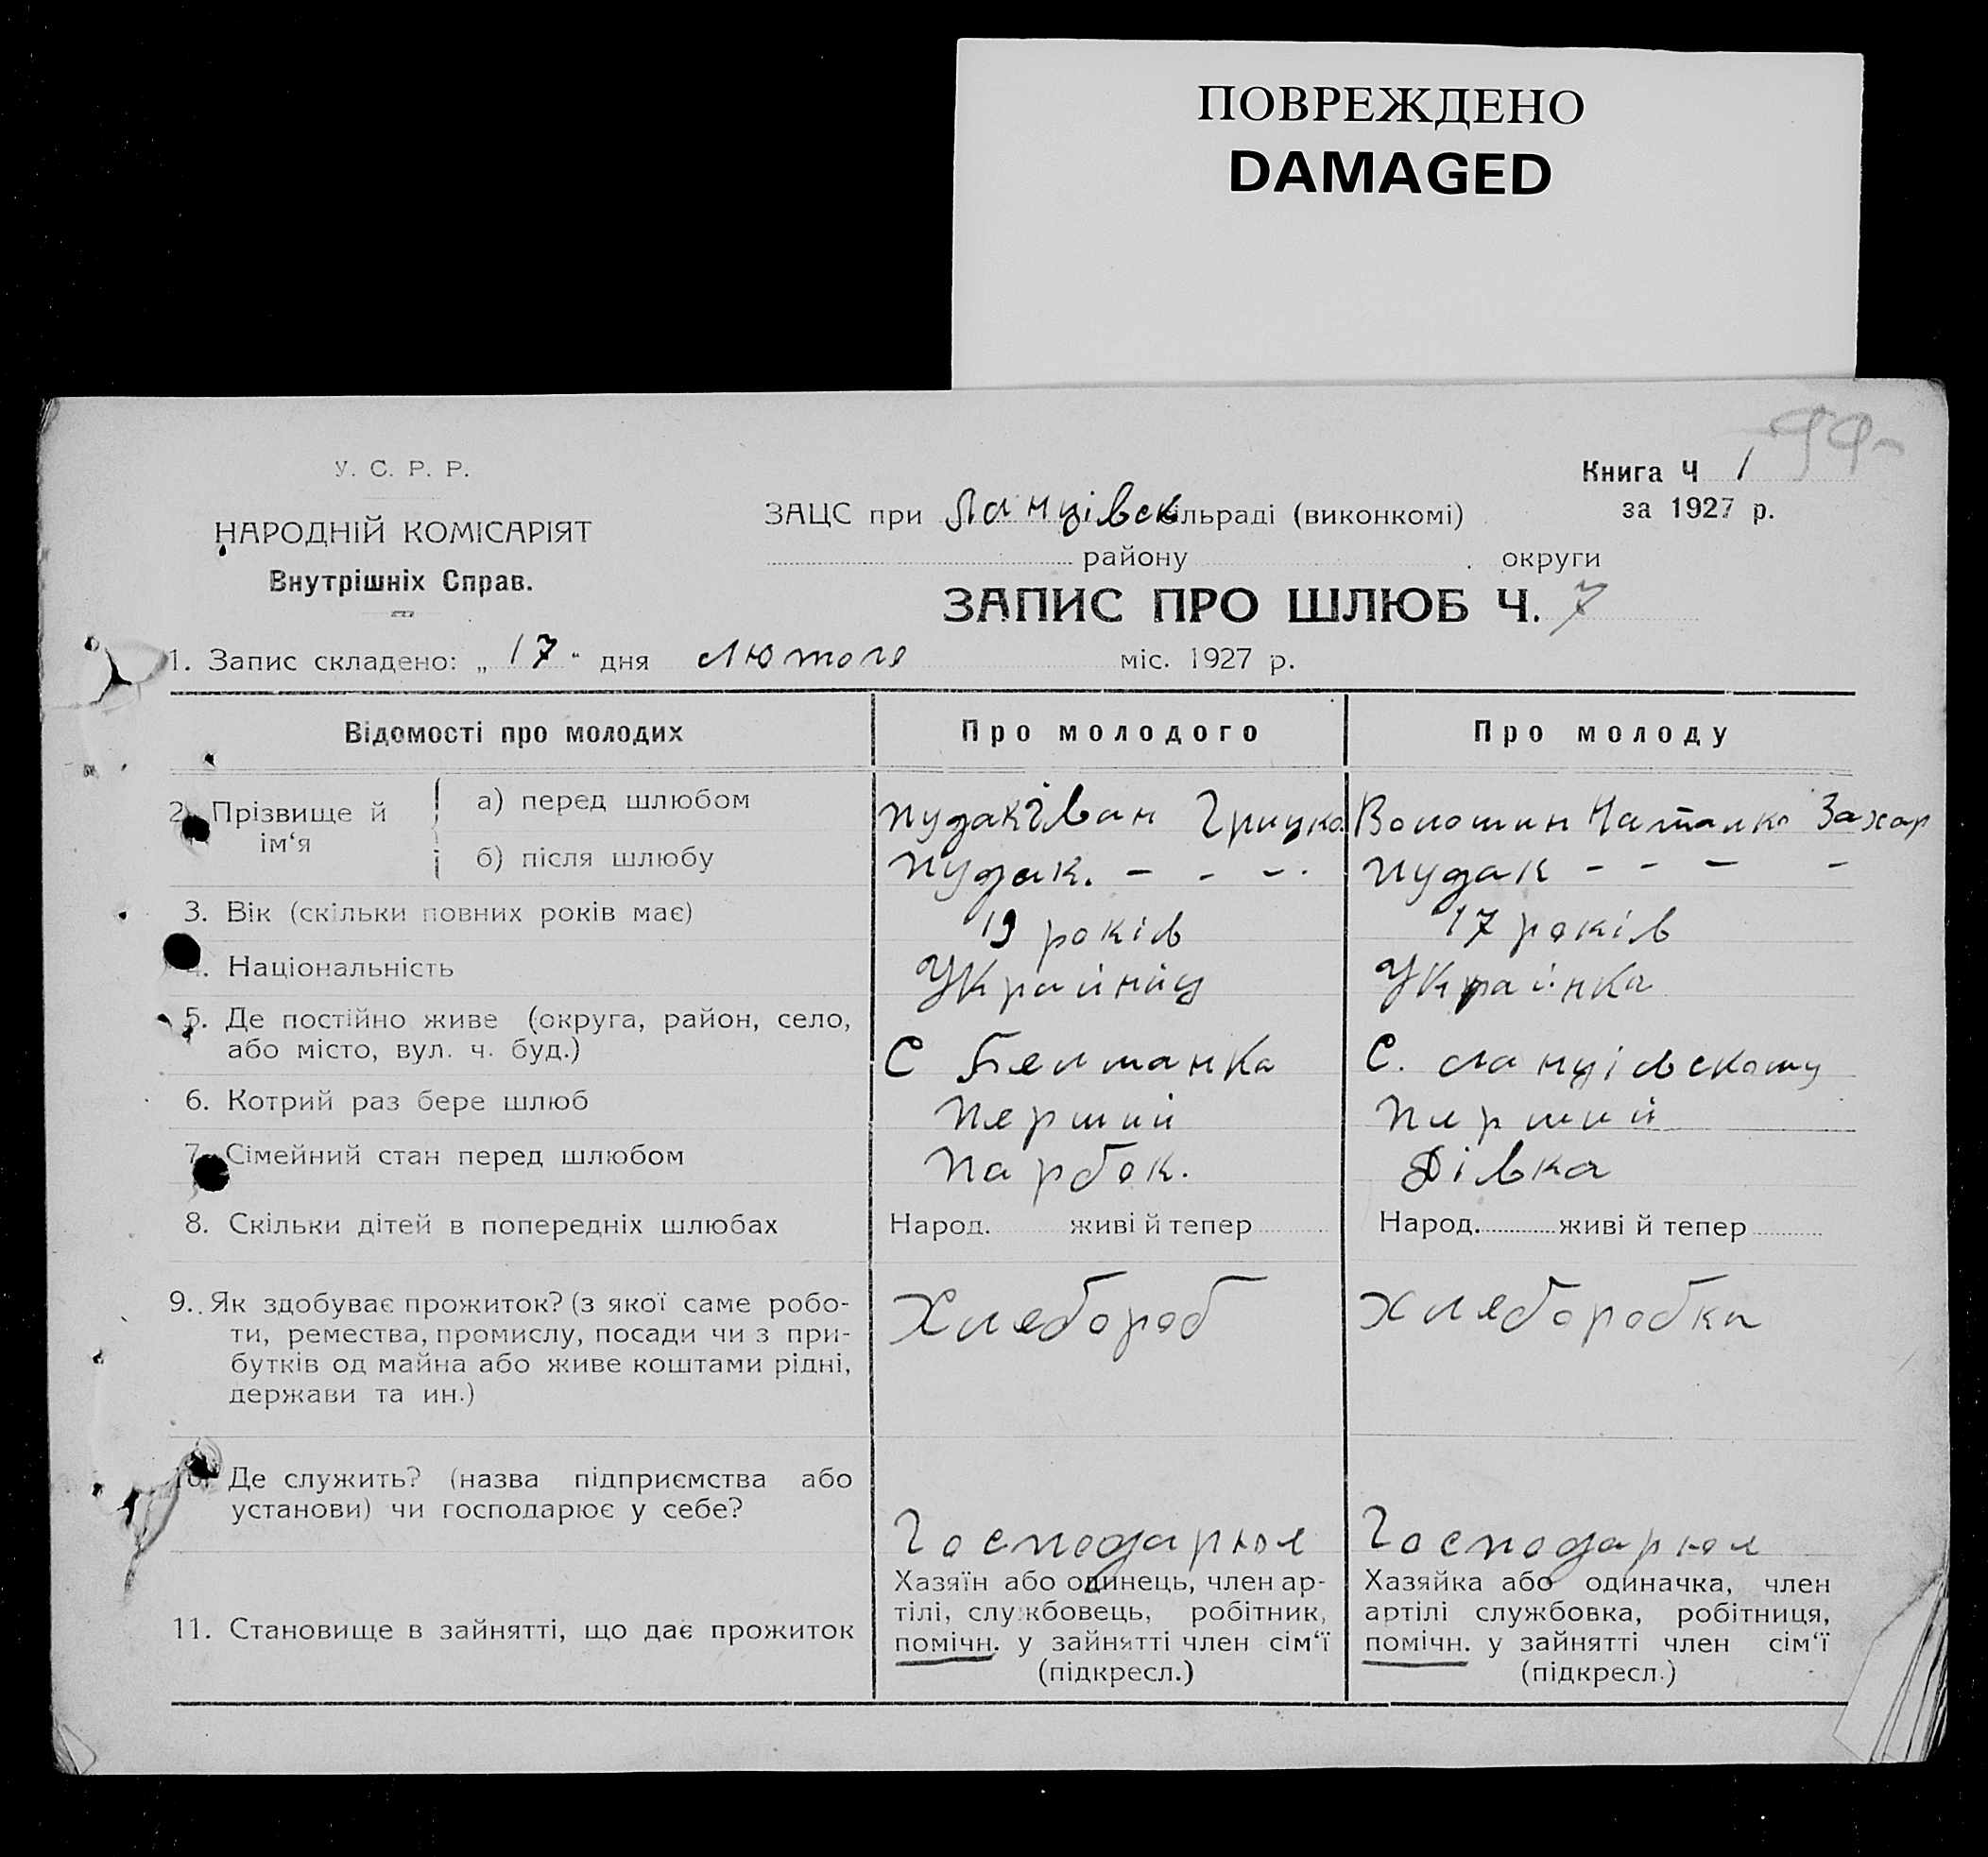 ПОВРЕЖДЕНО
DAMAGED
99
У. С. Р. Р.
НАРОДНІЙ КОМІСАРІЯТ
Внутрішніх Справ.
Книга Ч 1
за 1927 р.
ЗАЦС при Ланцівск сільраді (виконкомі)
району округи
ЗАПИС ПРО ШЛЮБ Ч. 7
1. Запис складено: „ 17 " дня лютого міс. 1927 р.
Відомості про молодих Про молодого Про молоду
2. Прізвище й ім‘я а) перед шлюбом Пудак Іван Грицко Волошин Наталка Захар
б) після шлюбу Пудак. - - -. Пудак - - - -
3. Вік (скільки повних років має) 19 років 17 років
4. Національність Українец Українка
5. Де постійно живе (округа, район, село,
або місто, вул. ч. буд.) С С. Ланцівскому
6. Котрий раз бере шлюб Перший Перший
7. Сімейний стан перед шлюбом Парбок. Дівка
8. Скільки дітей в попередніх шлюбах Народ. живі й тепер Народ. живі й тепер
9. Як здобуває прожиток? (з якої саме робо-
ти, ремества, промислу, посади чи з при-
бутків од майна або живе коштами рідні,
держави та ин.)
Хлебороб хлеборобка
10. Де служить? (назва підприємства або
установи) чи господарює у себе?
Господарюе Господарюе
11. Становище в зайнятті, що дає прожиток
Хазяїн або одинець, член ар-
тілі, службовець, робітник,
помічн. у зайнятті член сім‘ї
(підкресл.)
Хазяйка або одиначка, член
артілі службовка, робітниця,
помічн. у зайнятті член сім‘ї
(підкресл.)